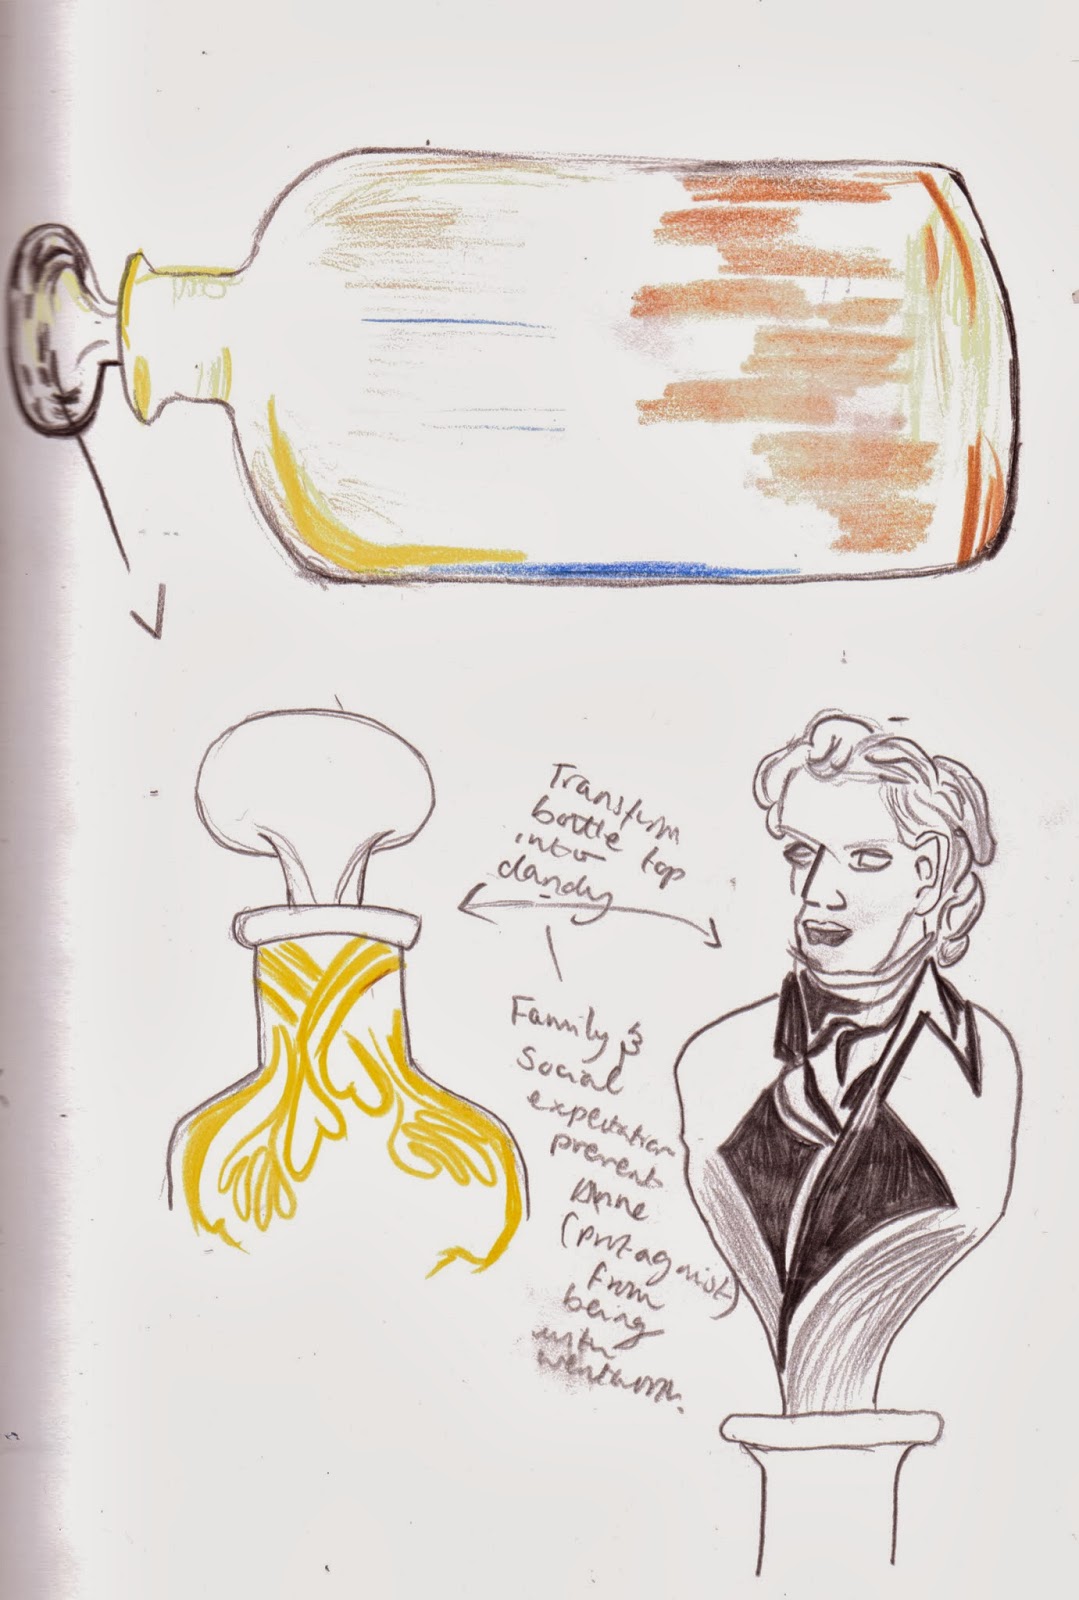 Transform
bottle top
into
dandy
Family &
Social
expectation
prevent
Anne
(protagonist)
from
being
with
wentworth.